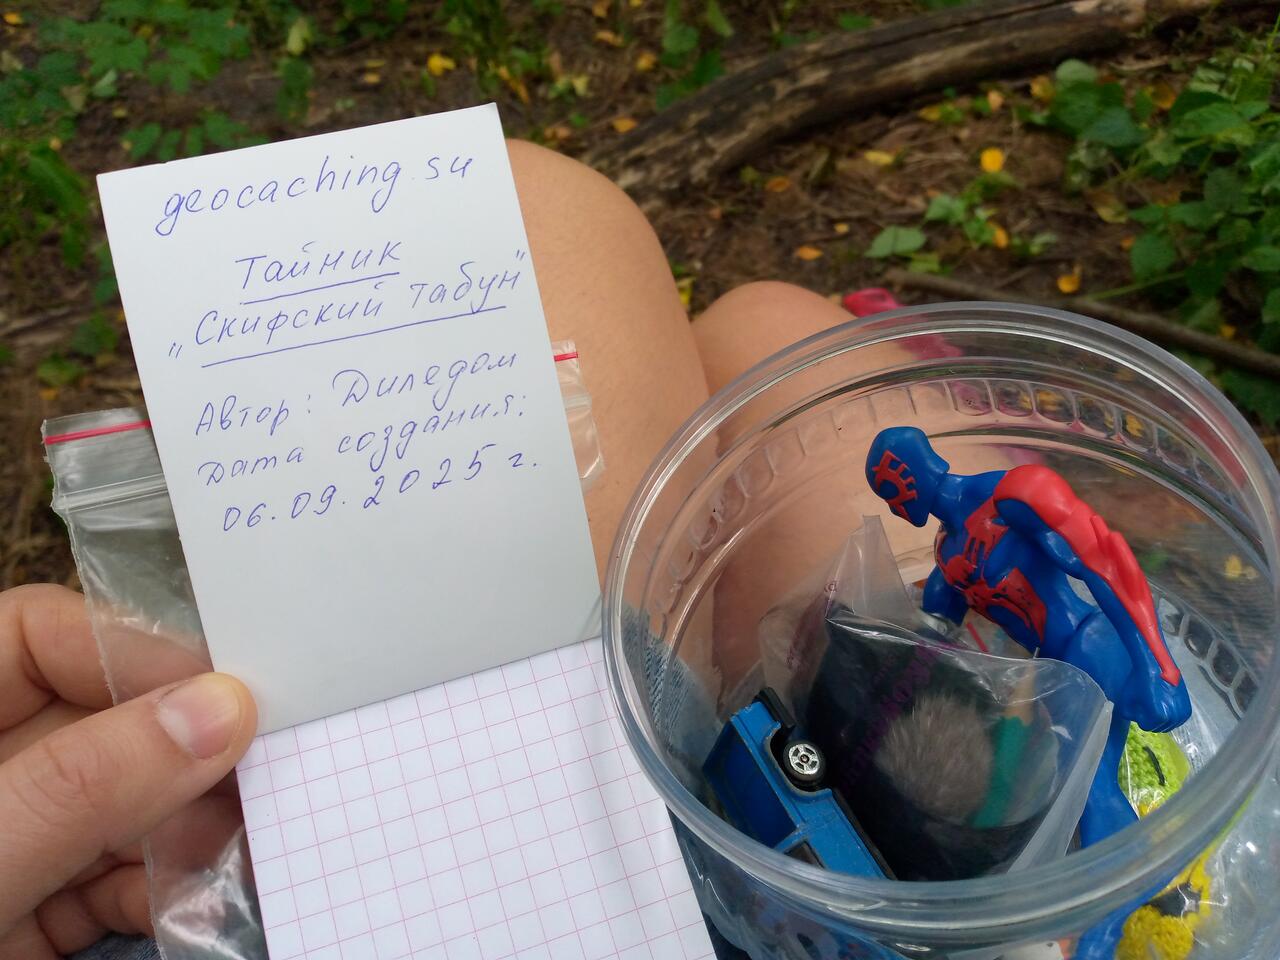 geocaching.su
Тайник
„Скифский табун"
Автор: Диледом
Дата создания:
06.09.2025 г.